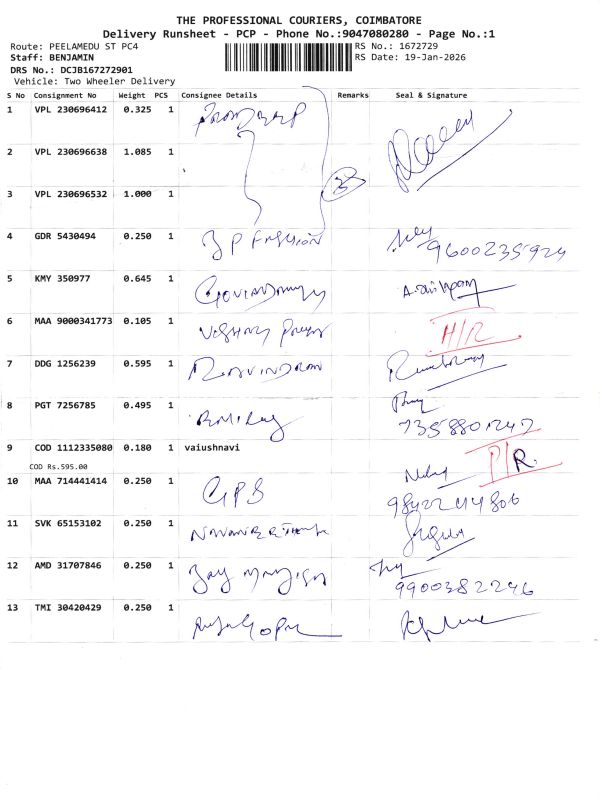 THE PROFESSIONAL COURIERS, COIMBATORE
Delivery Runsheet - PCP - Phone No.:9047080280 - Page No.:1
Route: PEELAMEDU ST PC4 RS No.: 1672729
Staff: BENJAMIN RS Date: 19-Jan-2026
DRS No.: DCJB167272901
Vehicle: Two Wheeler Delivery
S No Consignment No Weight PCS Consignee Details Remarks Seal & Signature
1 VPL 230696412 0.325 1
2 VPL 230696638 1.085 1
3 VPL 230696532 1.000 1 3
4 GDR 5430494 0.250 1 JP FASHION 9600235924
5 KMY 350977 0.645 1
6 MAA 9000341773 0.105 1 H/R
7 DDG 1256239 0.595 1 RAVINDRAN
8 PGT 7256785 0.495 1 7358801247
9 COD 1112335080 0.180 1 vaiushnavi P/R.
COD Rs.595.00
10 MAA 714441414 0.250 1 GPS 9842244806
11 SVK 65153102 0.250 1
12 AMD 31707846 0.250 1 9900382246
13 TMI 30420429 0.250 1